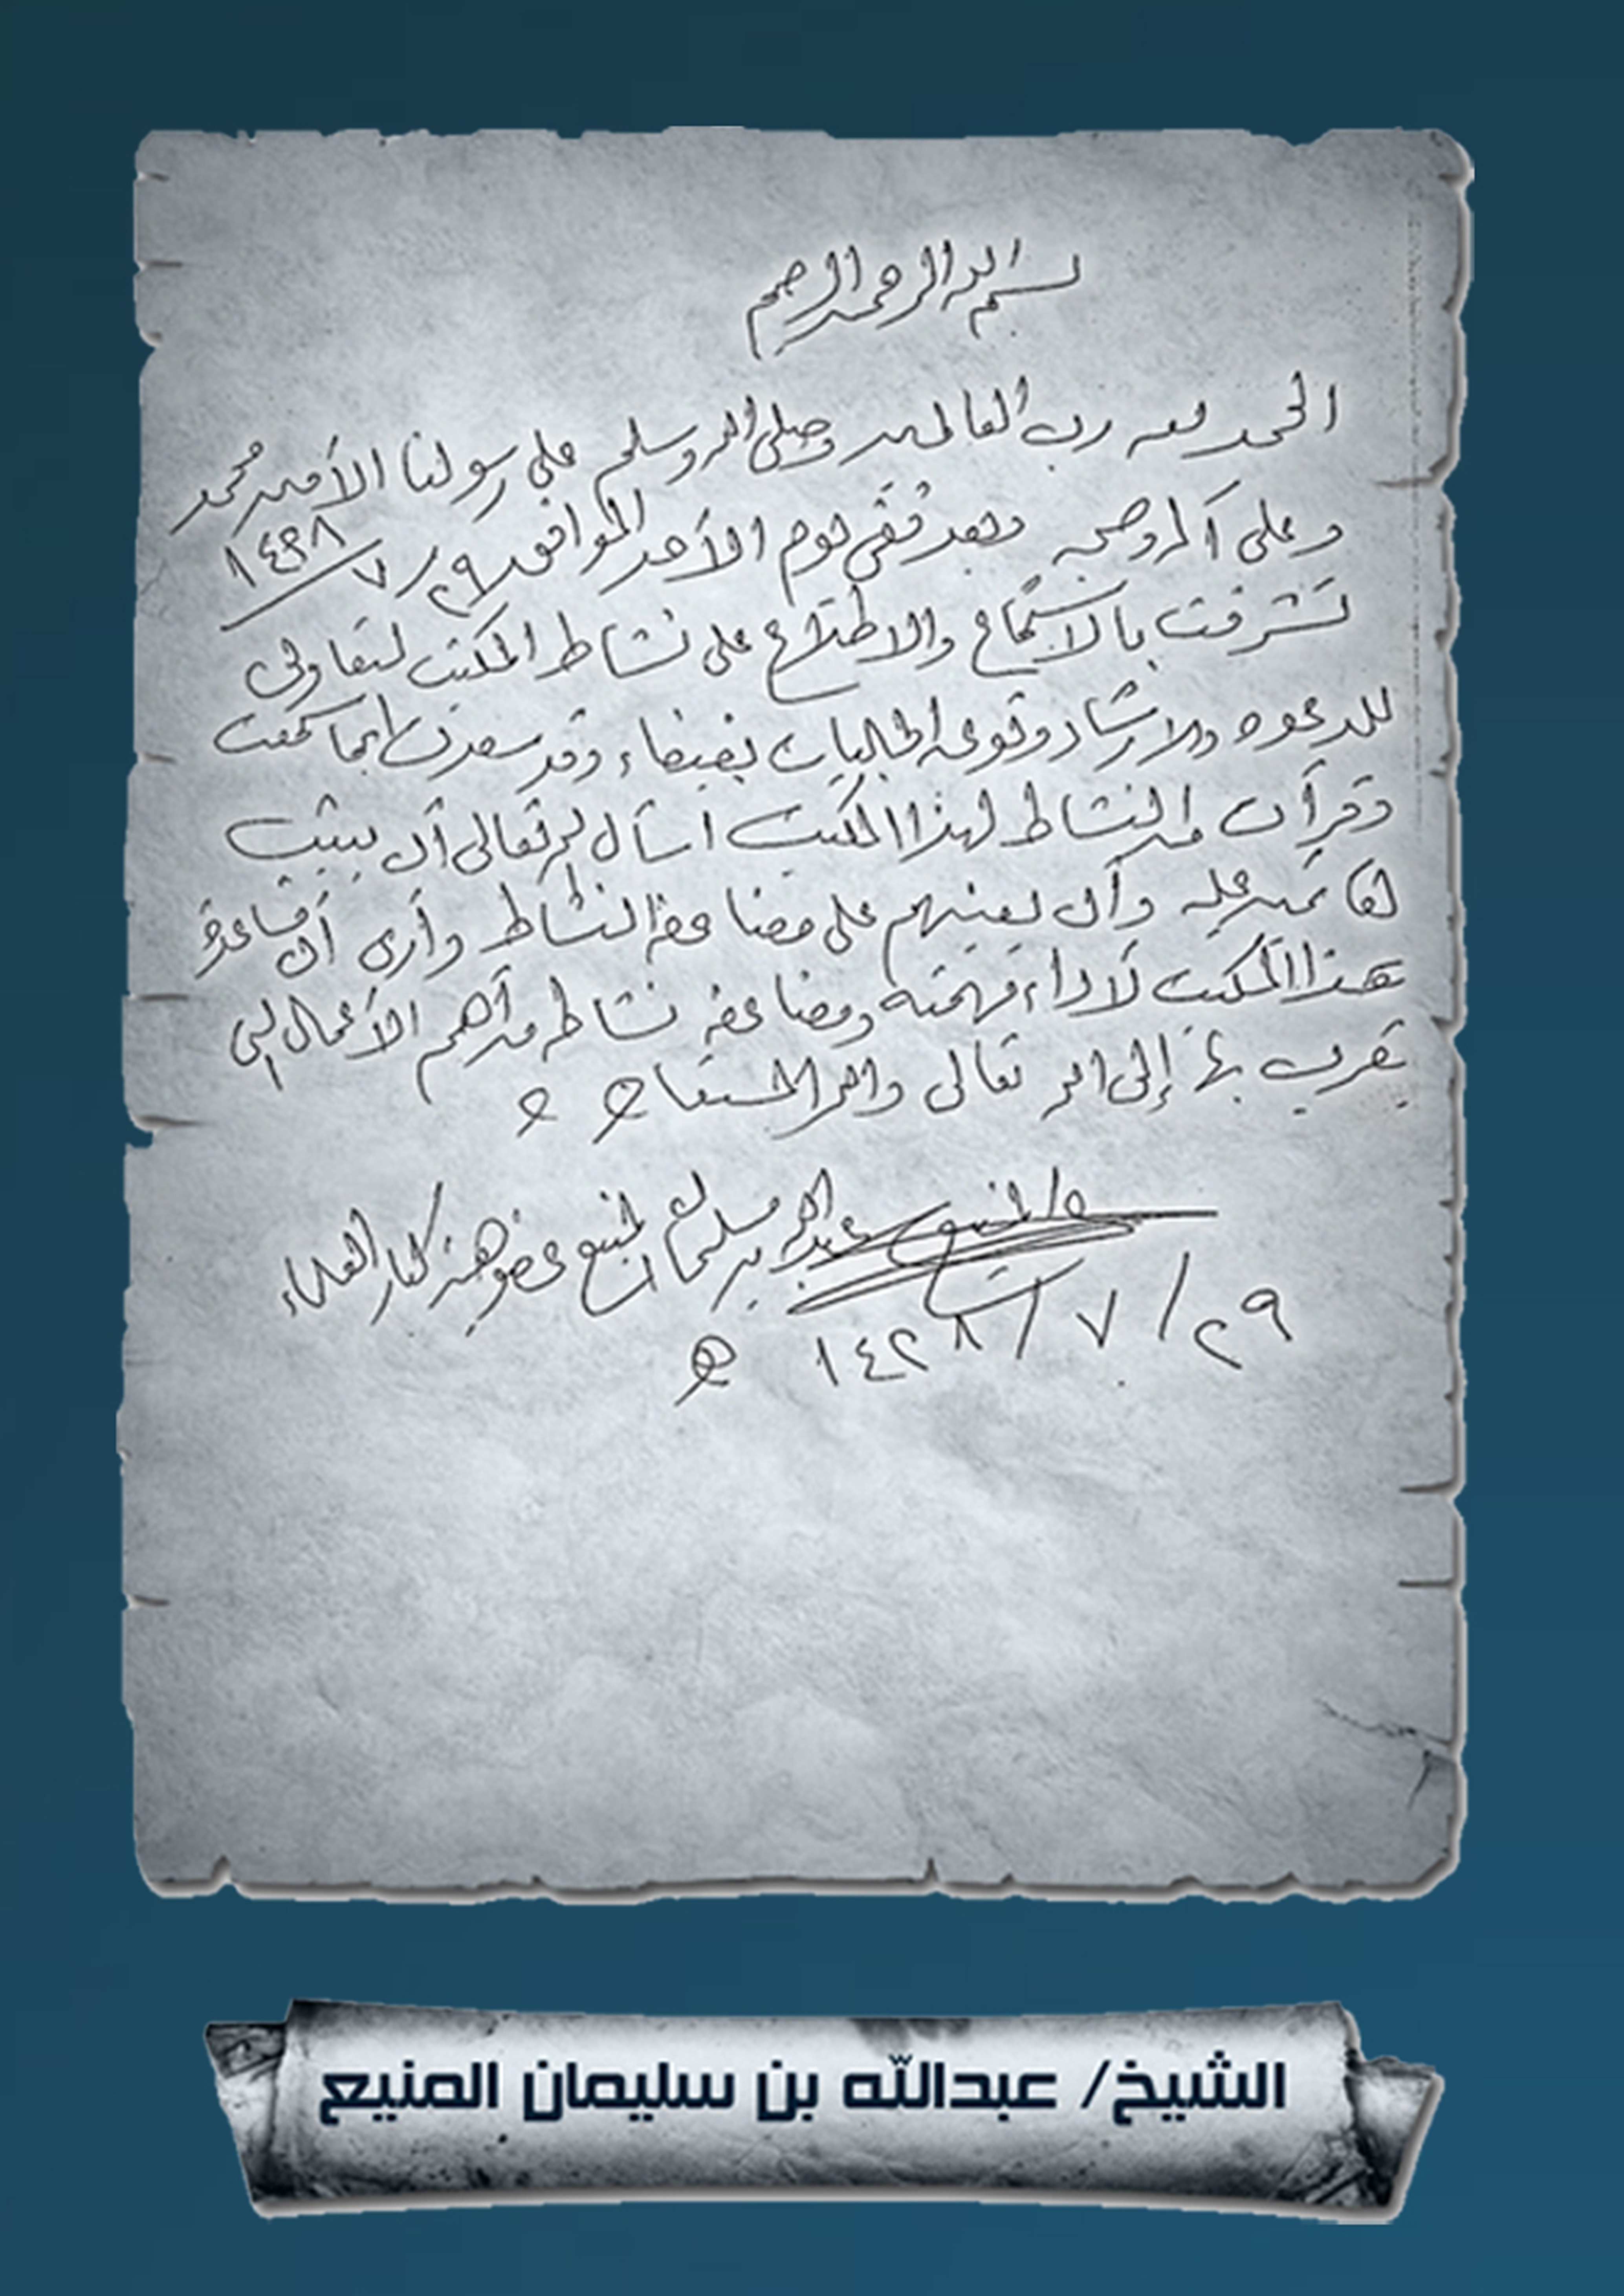 بسم الله الرحمن الرحيم
الحمد لله رب العالمين وصلى الله وسلم على رسولنا الأمين محمد
وعلى آله وصحبه وبعد ففي يوم الأحد الموافق ٢٩/٧/١٤٢٨
تشرفت بالاستماع والاطلاع على نشاط المكتب التعاوني
للدعوة والارشاد وتوعية الجاليات بضباء وقد سعدت بما سمعت
وقرأت من النشاط لهذا المكتب اسأل الله تعالى أن يثيب
القائمين عليه وأن يعينهم على مضاعفة النشاط وأرى أن مساعدة
هذا المكتب لأداء مهمته ومضاعفة نشاطه من أهم الأعمال التي
يتقرب بها إلى الله تعالى والله المستعان
عبدالله بن سليمان المنيع عضو هيئة كبار العلماء
٢٩/٧/١٤٢٨ هـ
الشيخ/ عبدالله بن سليمان المنيع